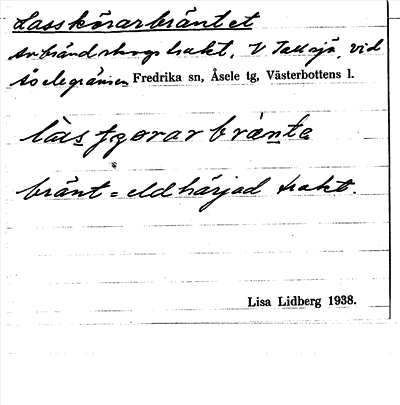 Lasskörarbräntet
Avbränd skogstrakt, V Tallsjö, vid
Åselegränsen Fredrika sn, Åsele tg, Västerbottens l.
bränt = eldhärjad trakt.
Lisa Lidberg 1938.